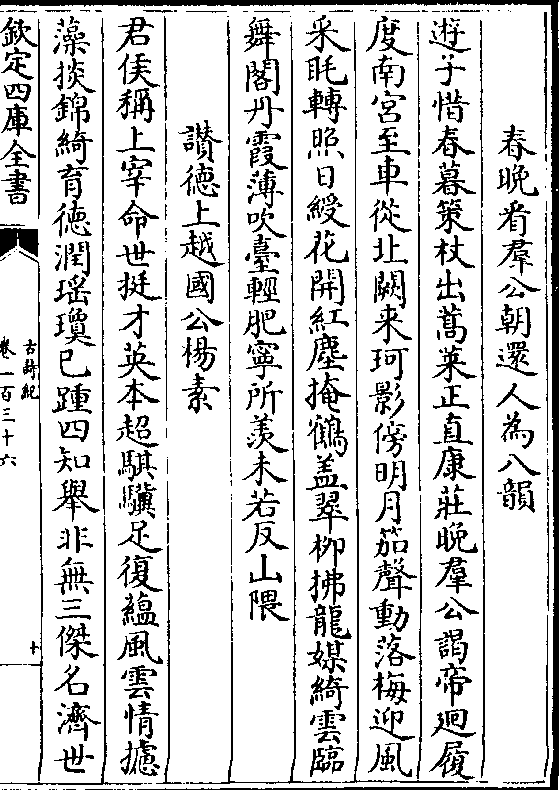 春晚看羣公朝還人為八韻
遊子惜春暮策杖出蒿萊正直康莊晚羣公謁帝廻履
度南宮至車從北闕来珂影傍明月笳聲動落梅迎風
采眊轉照日綬花開紅塵掩鶴盖翠柳拂龍媒綺雲臨
舞閣丹霞薄吹臺輕肥寧所羨未若反山隈
讃德上越國公楊素
君侯稱上宰命世挺才英本超騏驥足復蘊風雲情攄
藻掞錦綺育德潤瑤瓊已踵四知舉非無三傑名濟世
欽定四庫全書
古詩紀
卷一百三十六
十